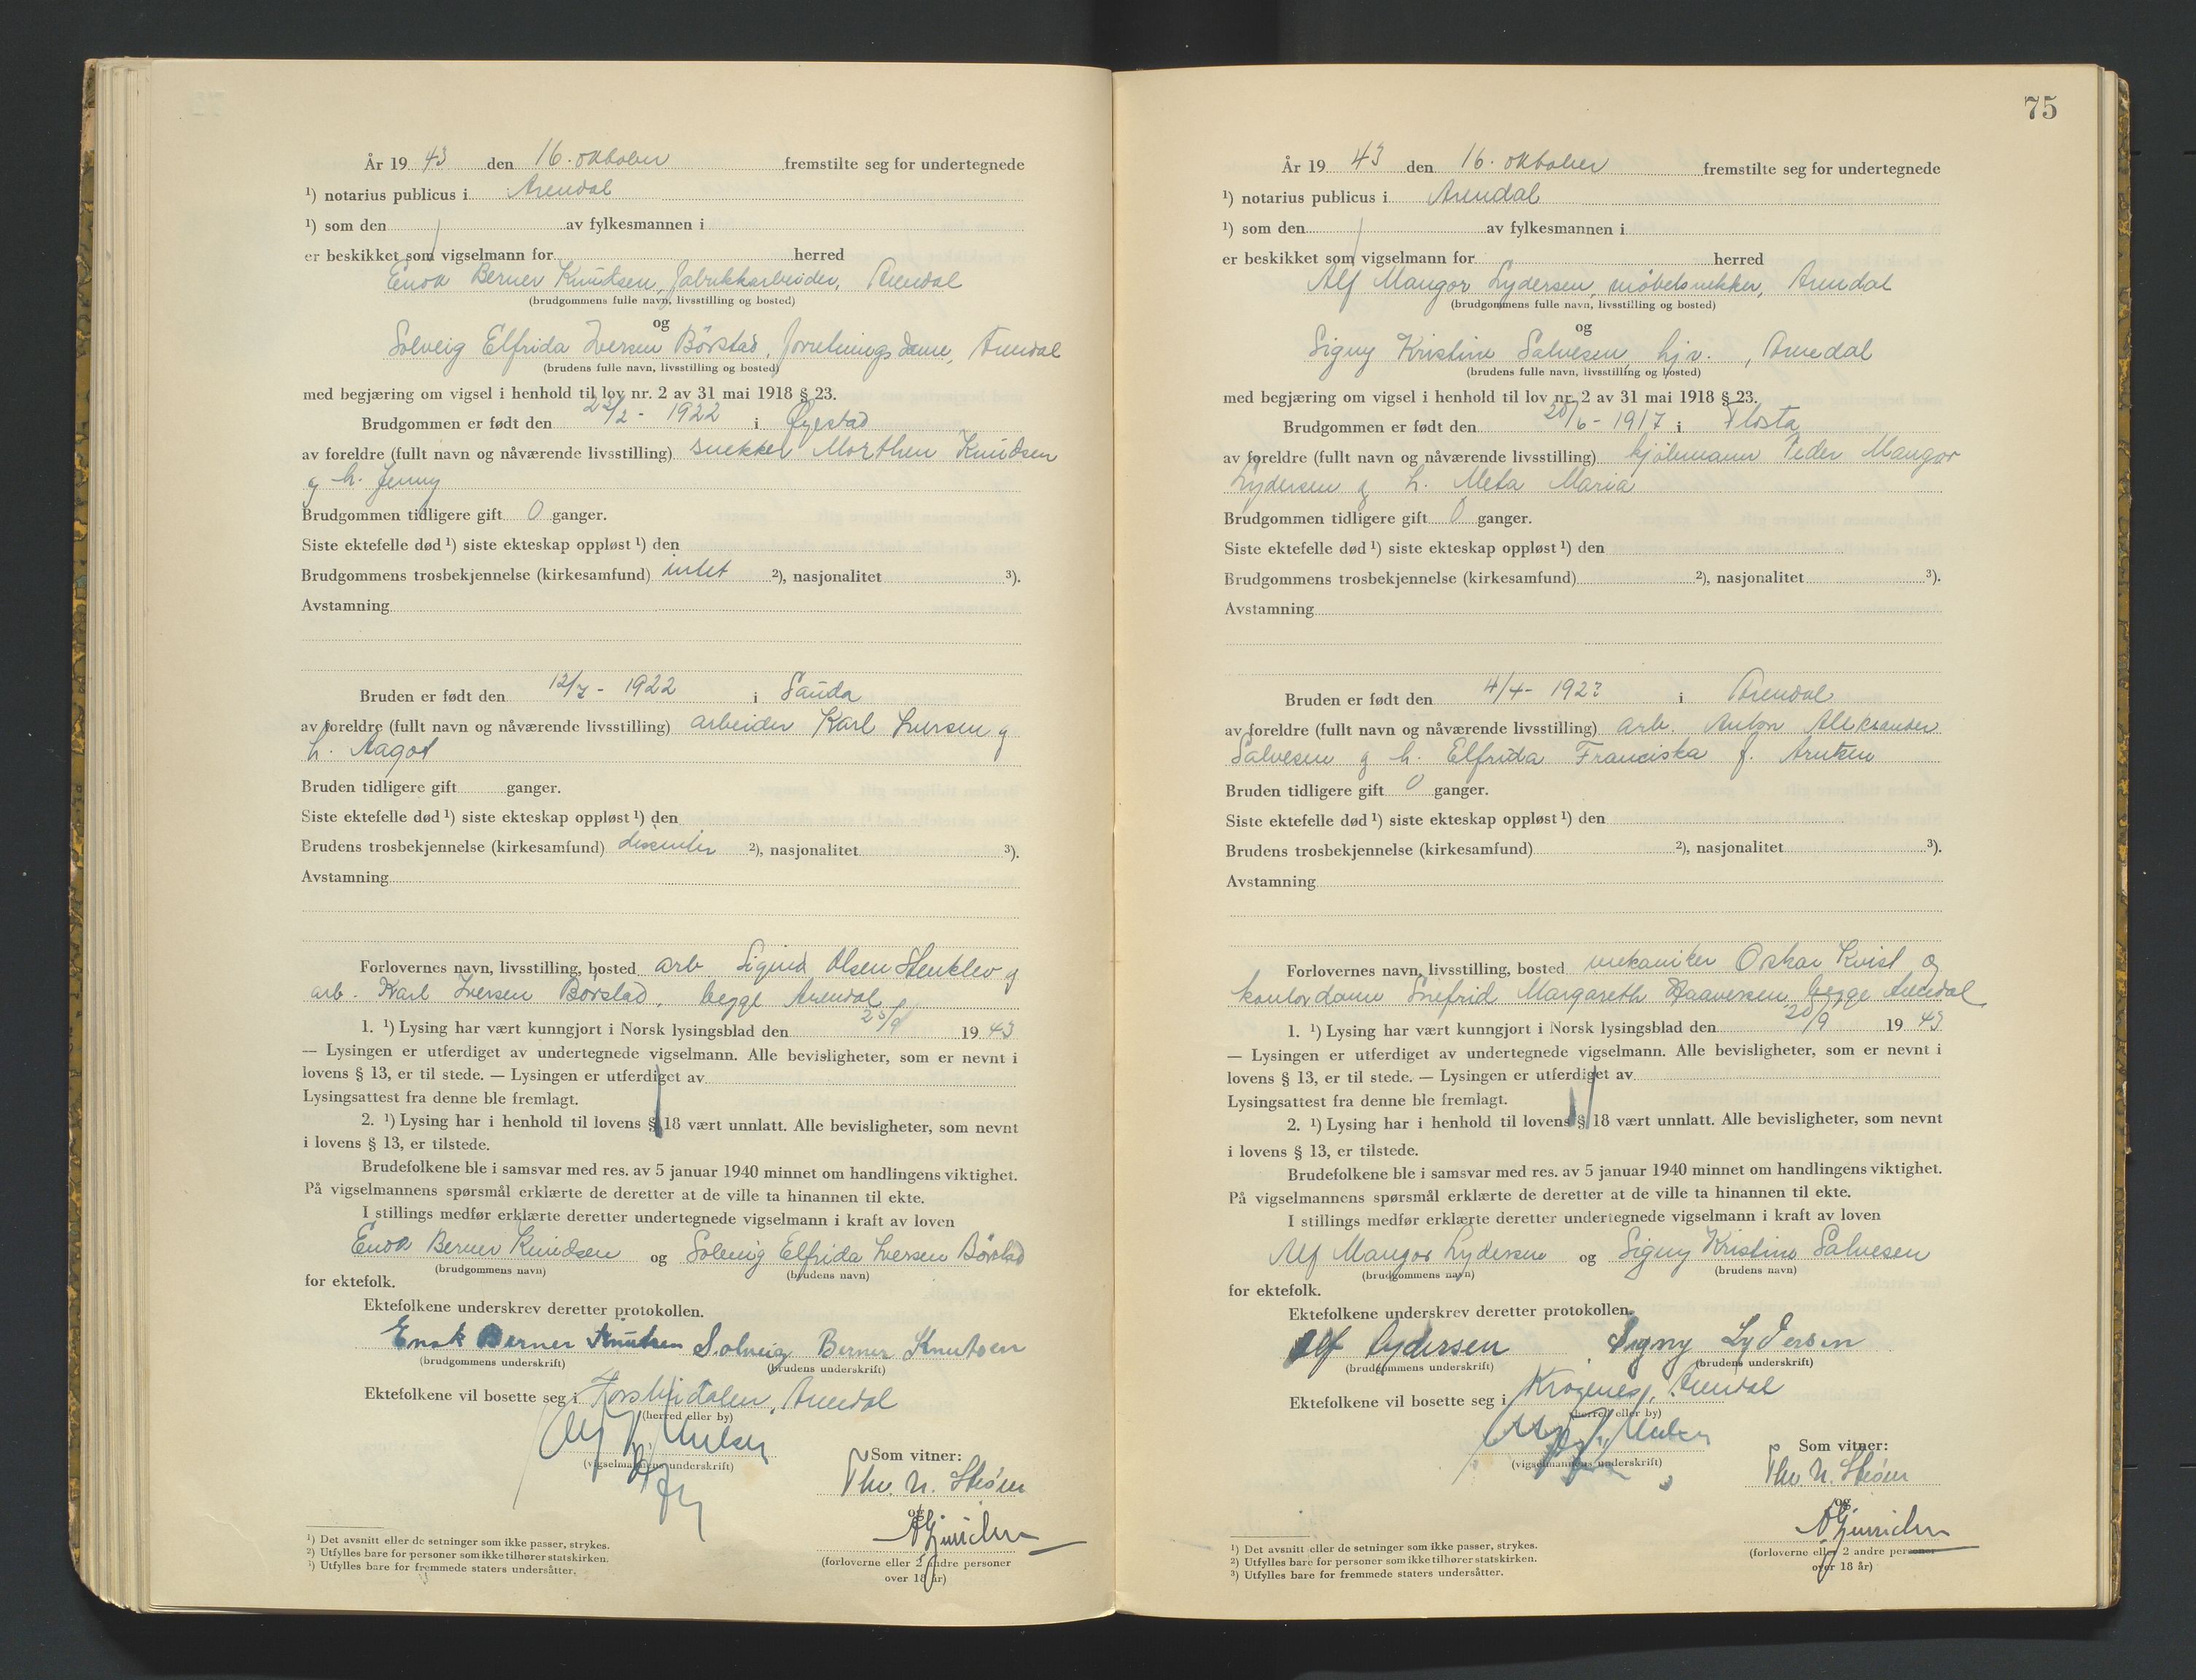 År 19 43 den 16. oktober fremstilte seg for undertegnede
¹) notarius publicus i Arendal
¹) som den av fylkesmannen i
er beskikket som vigselmann for herred
Berner Knudsen, fabrikkarbeider, Arendal
(brudgommens fulle navn, livsstilling og bosted)
og
Solveig Elfrida Iversen Börstad, forretningsdame, Arendal
(brudens fulle navn, livsstilling og bosted)
med begjæring om vigsel i henhold til lov nr. 2 av 31 mai 1918 § 23.
Brudgommen er født den /2 - 1922 i Øyestad
av foreldre (fullt navn og nåværende livsstilling) snekker Morthen Knudsen
og h. Jenny
Brudgommen tidligere gift 0 ganger.
Siste ektefelle død ¹) siste ekteskap oppløst ¹) den
Brudgommens trosbekjennelse (kirkesamfund) intet ²), nasjonalitet ³).
Avstamning
Bruden er født den 12/7 - 1922 i Sauda
av foreldre (fullt navn og nåværende livsstilling) arbeider Karl Iversen og
h. Aagot
Bruden tidligere gift ganger.
Siste ektefelle død ¹) siste ekteskap oppløst ¹) den
Brudens trosbekjennelse (kirkesamfund) dissenter ²), nasjonalitet ³).
Avstamning
Forlovernes navn, livsstilling, bosted arb. Sigurd Olsen Stenklev og
arb. Karl Iversen Børstad, begge Arendal
1. ¹) Lysing har vært kunngjort i Norsk lysingsblad den /9 19 43
— Lysingen er utferdiget av undertegnede vigselmann. Alle bevisligheter, som er nevnt i
lovens § 13, er til stede. — Lysingen er utferdiget av
Lysingsattest fra denne ble fremlagt.
2. ¹) Lysing har i henhold til lovens § 18 vært unnlatt. Alle bevisligheter, som nevnt
i lovens § 13, er tilstede.
Brudefolkene ble i samsvar med res. av 5 januar 1940 minnet om handlingens viktighet.
På vigselmannens spørsmål erklærte de deretter at de ville ta hinannen til ekte.
I stillings medfør erklærte deretter undertegnede vigselmann i kraft av loven
Berner Knudsen og Solveig Elfrida Iversen Börstad
(brudgommens navn) (brudens navn)
for ektefolk.
Ektefolkene underskrev deretter protokollen.
Enok Berner Knutsen Solveig Berner Knutsen
(brudgommens underskrift) (brudens underskrift)
Ektefolkene vil bosette seg i Arendal
(herred eller by)
(vigselmannens underskrift)
Som vitner:
Thv. N.
og
(forloverne eller 2 andre personer
over 18 år)
¹) Det avsnitt eller de setninger som ikke passer, strykes.
²) Utfylles bare for personer som ikke tilhører statskirken.
³) Utfylles bare for fremmede staters undersåtter.
75
År 19 43 den 16. oktober fremstilte seg for undertegnede
¹) notarius publicus i Arendal
¹) som den av fylkesmannen i
er beskikket som vigselmann for herred
Alf Mangor Lydersen, møbelsnekker, Arendal
(brudgommens fulle navn, livsstilling og bosted)
og
Signy Kristine Salvesen, hjv., Arendal
(brudens fulle navn, livsstilling og bosted)
med begjæring om vigsel i henhold til lov nr. 2 av 31 mai 1918 § 23.
Brudgommen er født den 20/6 - 1917 i Flosta
av foreldre (fullt navn og nåværende livsstilling) Peder Mangor
Lydersen og h. Meta Maria
Brudgommen tidligere gift 0 ganger.
Siste ektefelle død ¹) siste ekteskap oppløst ¹) den
Brudgommens trosbekjennelse (kirkesamfund) ²), nasjonalitet ³).
Avstamning
Bruden er født den 4/4 - i Arendal
av foreldre (fullt navn og nåværende livsstilling) arb. Anton Alexander
Salvesen og h. Elfrida Franciska f. Arntsen
Bruden tidligere gift 0 ganger.
Siste ektefelle død ¹) siste ekteskap oppløst ¹) den
Brudens trosbekjennelse (kirkesamfund) ²), nasjonalitet ³).
Avstamning
Forlovernes navn, livsstilling, bosted mekaniker Oskar Kvist og
kontordame Snefrid Margareth Haaversen begge Arendal
1. ¹) Lysing har vært kunngjort i Norsk lysingsblad den 20/9 19 43
— Lysingen er utferdiget av undertegnede vigselmann. Alle bevisligheter, som er nevnt i
lovens § 13, er til stede. — Lysingen er utferdiget av
Lysingsattest fra denne ble fremlagt.
2. ¹) Lysing har i henhold til lovens § 18 vært unnlatt. Alle bevisligheter, som nevnt
i lovens § 13, er tilstede.
Brudefolkene ble i samsvar med res. av 5 januar 1940 minnet om handlingens viktighet.
På vigselmannens spørsmål erklærte de deretter at de ville ta hinannen til ekte.
I stillings medfør erklærte deretter undertegnede vigselmann i kraft av loven
Alf Mangor Lydersen og Signy Kristine Salvesen
(brudgommens navn) (brudens navn)
for ektefolk.
Ektefolkene underskrev deretter protokollen.
Alf Lydersen Signy Lydersen
(brudgommens underskrift) (brudens underskrift)
Ektefolkene vil bosette seg i Krøgenes, Arendal
(herred eller by)
(vigselmannens underskrift)
Som vitner:
Thv. N.
og
(forloverne eller 2 andre personer
over 18 år)
¹) Det avsnitt eller de setninger som ikke passer, strykes.
²) Utfylles bare for personer som ikke tilhører statskirken.
³) Utfylles bare for fremmede staters undersåtter.